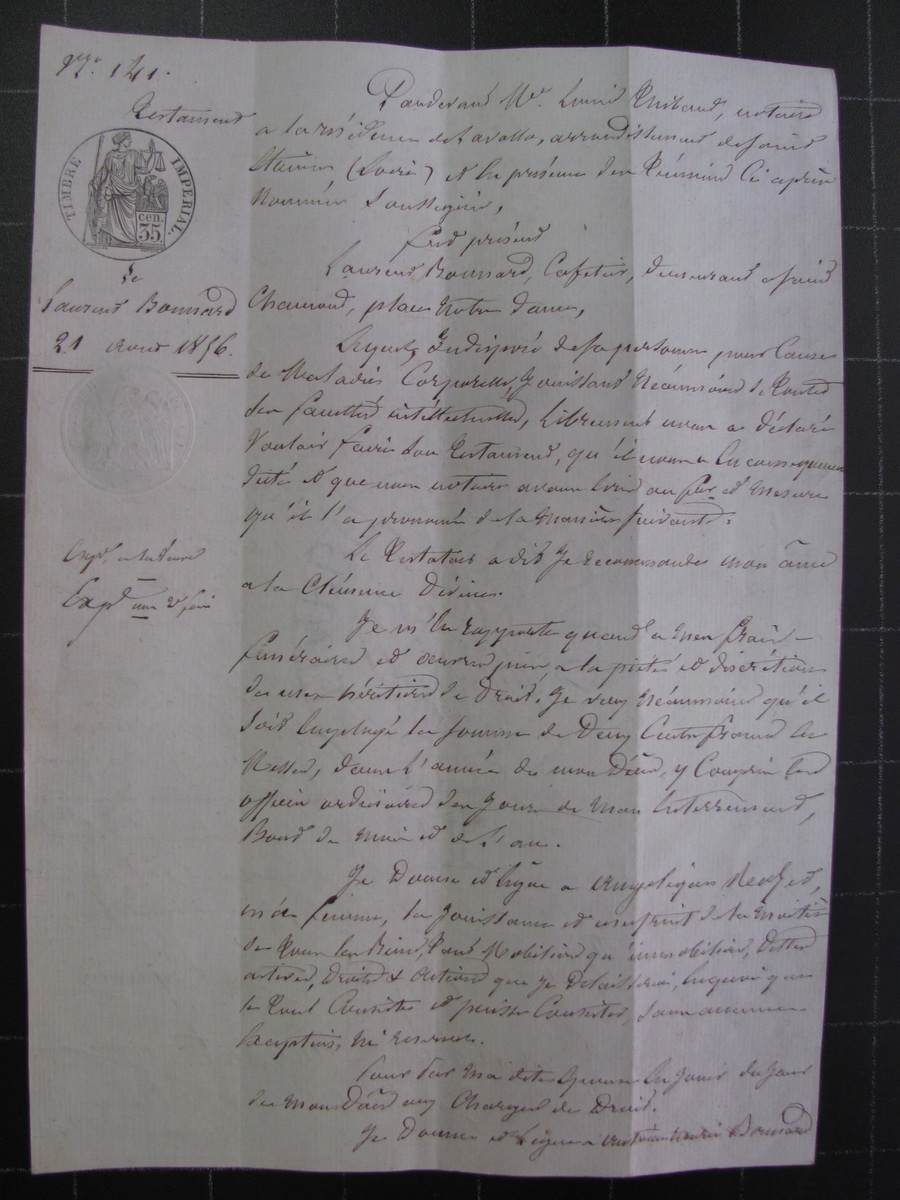 N° 141.
Testament
TIMBRE IMPERIAL.
35 cen.
de
Laurent Bonnard
21 aout 1856.
Expé
Expé une 2e fois
Pardevant Me. Louis Thibaud, notaire
a la résidence de Lavalla, arrondissement de saint
Etienne (Loire) et En présence des Témoins Ci après
Nommés Soussignés,
fut présent
Laurent Bonnard, Cafetier, demeurant a saint
Chamond, place Notre dame,
Lequel, Indisposé de sa personne pour Cause
de Maladie Corporelle, Jouissant Néanmoins de Toutes
ses facultés intellectuelles, Librement nous a déclaré
Vouloir faire son Testament, qu'il nous a En conséquence
dicté et que nous notaire avons Ecrit au fur et mesure
qu'il l'a prononcé de la Manière suivante.
Le Testateur a dit Je recommande mon âme
a la Clémence Divine.
Je m'En rapporte quand a Mes frais
funéraires et œuvres pies a la piété et discrétion
de mes héritiers de Droit. Je veux Néanmoins qu'il
soit Employé la somme de Deux Cents francs En
Messes, dans L'année de mon Décès, y Compris les
offices ordinaires des Jours de Mon Enterrement,
Bout de mois et de l'an.
Je Donne et Lègue a Angélique
ma femme, la Jouissance et usufruit de la moitié
de Tous les Biens, Tant Mobiliers qu'immobiliers, Dettes
actives, droits & actions que Je Délaisserai, En quoi que
le Tout Consiste et puisse Consister, sans aucune
Exception, Ni reserve.
Pour par Ma dite Epouse En Jouir du Jour
de Mon Décès aux Charges de Droit.
Je Donne et Lègue a Bonnard